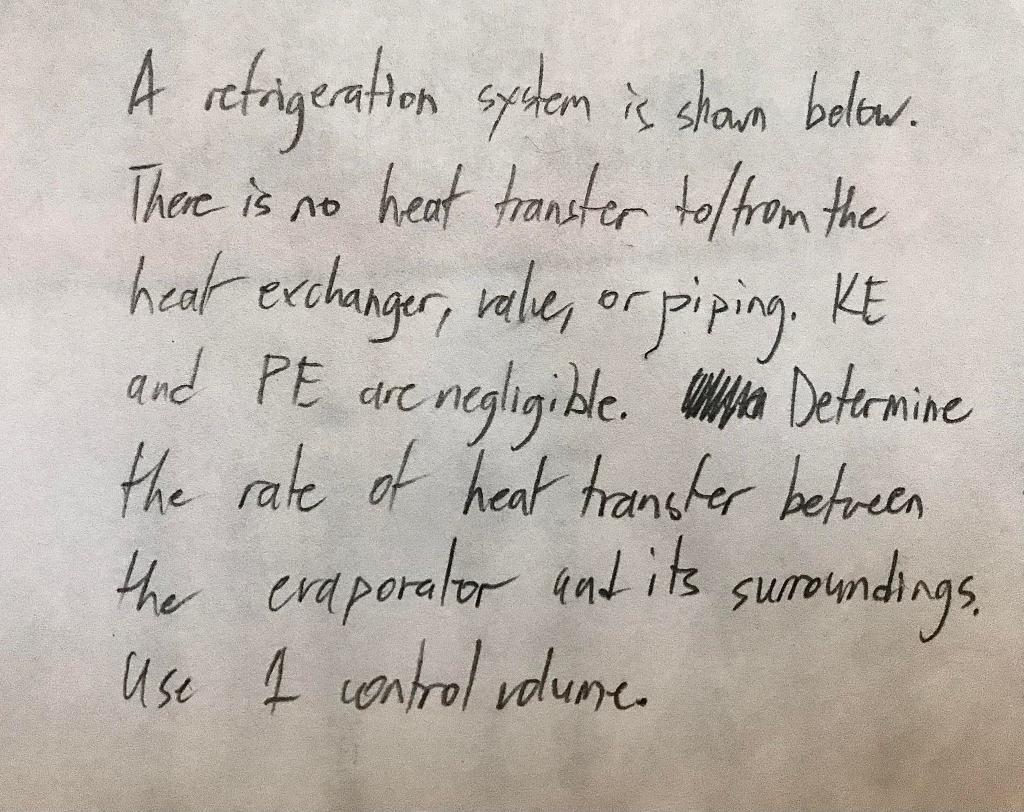 A refrigeration system is shown below.
There is no heat transfer to/from the
heat exchanger, valve, or piping. KE
and PE are negligible. Determine
the rate of heat transfer between
the evaporator and its surroundings.
Use 1 control volume.